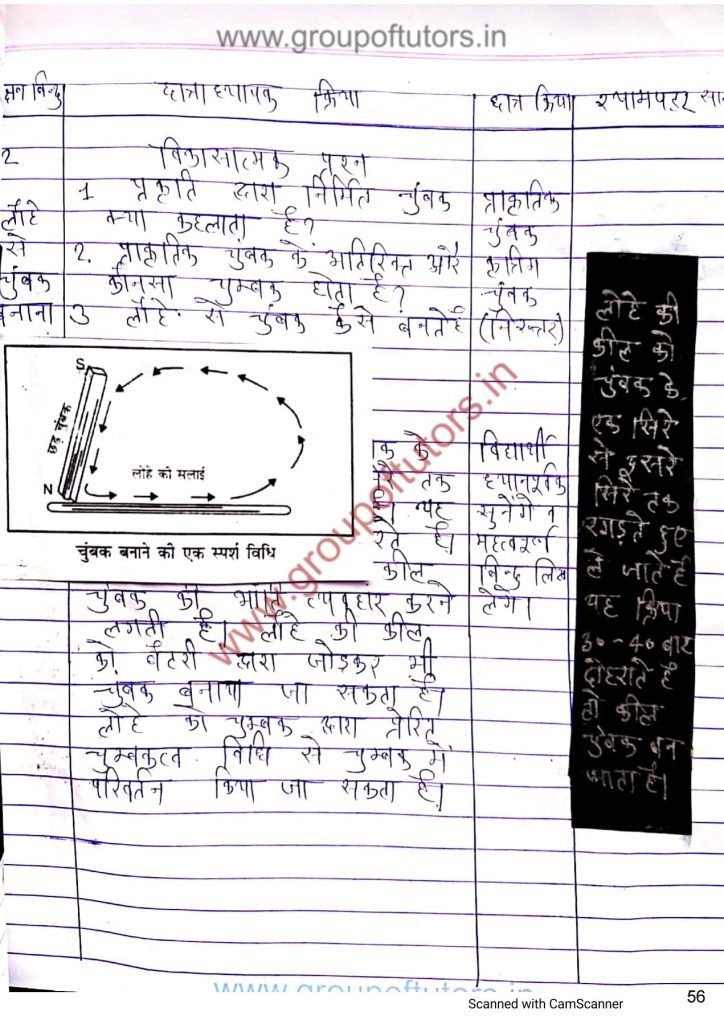 www.groupoftutors.in
बिन्दु छात्राध्यापक क्रिया छात्र क्रिया श्यामपट्ट सा
2 विकासात्मक प्रश्न
लोहे
से
चुंबक
बनाना
1 प्रकृति द्वारा निर्मित चुंबक
क्या कहलाता है?
2. प्राकृतिक चुंबक के अतिरिक्त और
कौनसा चुम्बक होता है?
3 लोहे से चुंबक कैसे बनते हैं
प्राकृतिक
चुंबक
कृत्रिम
चुंबक
(निरुत्तर)
S
छड़ चुंबक
N
लोहे की मलाई
चुंबक बनाने की एक स्पर्श विधि
क के
तक
यह
है।
कील
चुंबक की भांति व्यवहार करने
लगती है। लोहे की कील
को बैटरी द्वारा जोड़कर भी
चुंबक बनाया जा सकता है।
लोहे को चुम्बक द्वारा प्रेरित
चुम्बकत्व विधि से चुम्बक में
परिवर्तन किया जा सकता है।
विद्यार्थी
ध्यानपूर्वक
सुनेंगे व
महत्वपूर्ण
बिन्दु लिख
लेंगे।
लोहे की
कील को
चुंबक के
एक सिरे
से दूसरे
सिरे तक
रगड़ते हुए
ले जाते हैं
यह क्रिया
30-40 बार
दोहराते हैं
तो कील
चुंबक बन
जाता है।
www.groupoftutors.in
www.groupoftutors.in
Scanned with CamScanner
56